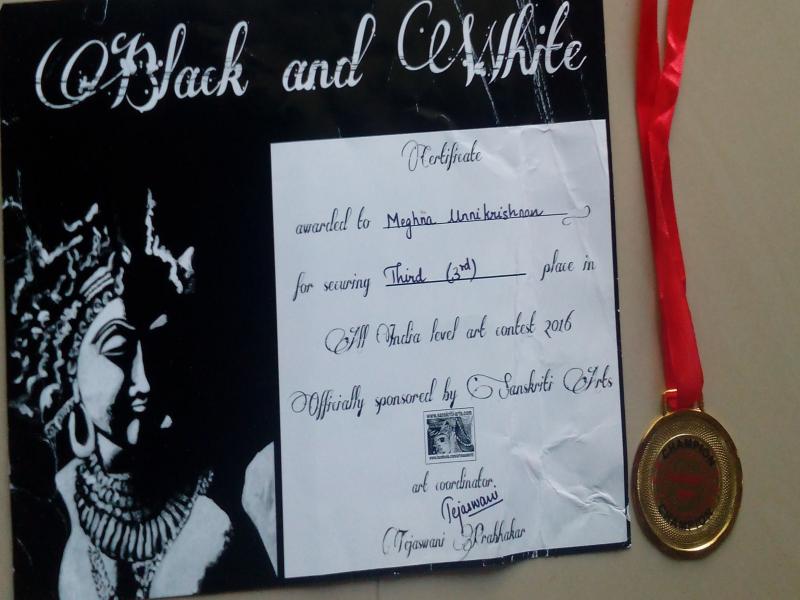 Black and White
Certificate
awarded to Meghna Unnikrishnan
for securing Third (3rd) place in
All India level art contest 2016
Officially sponsored by Sanskriti Arts
www.sanskriti-arts.com
art coordinator.
Tejaswani
Tejaswani Prabhakar
CHAMPION
CHAMPION